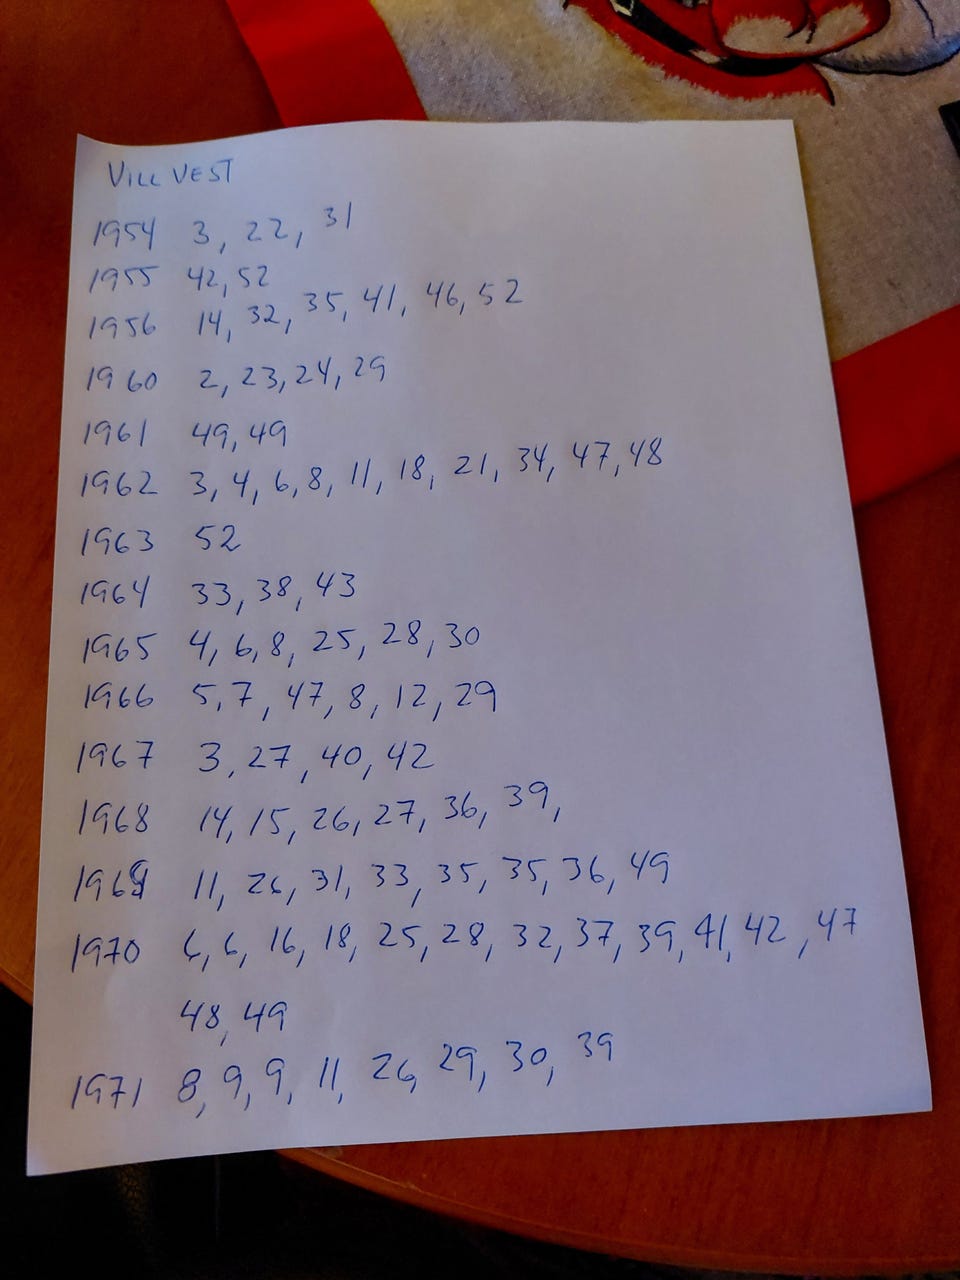 VILL VEST
1954 3, 22, 31
1955 42, 52
1956 14, 32, 35, 41, 46, 52
1960 2, 23, 24, 29
1961 49, 49
1962 3, 4, 6, 8, 11, 18, 21, 34, 47, 48
1963 52
1964 33, 38, 43
1965 4, 6, 8, 25, 28, 30
1966 5, 7, 47, 8, 12, 29
1967 3, 27, 40, 42
1968 14, 15, 26, 27, 36, 39,
1969 11, 26, 31, 33, 35, 35, 36, 49
1970 6, 6, 16, 18, 25, 28, 32, 37, 39, 41, 42, 47
48, 49
1971 8, 9, 9, 11, 26, 29, 30, 39